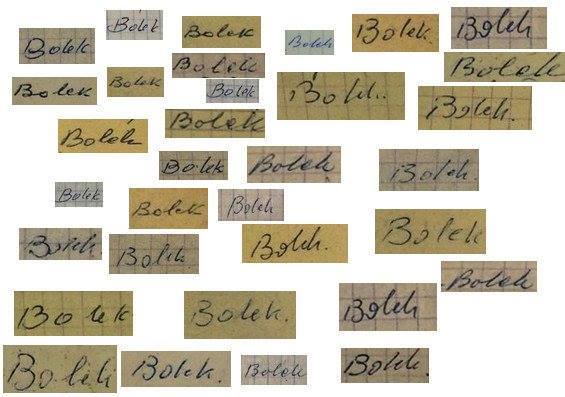 Bolek
Bolek
Bolek
Bolek
Bolek.
Bolek
Bolek
Bolek
Bolek
Bolek
Bolek
Bolek.
Bolek.
Bolek
Bolek
Bolek
Bolek
Bolek.
Bolek
Bolek
Bolek
Bolek
Bolek.
Bolek.
Bolek.
Bolek
Bolek
Bolek.
Bolek
Bolek
Bolek.
Bolek
Bolek.